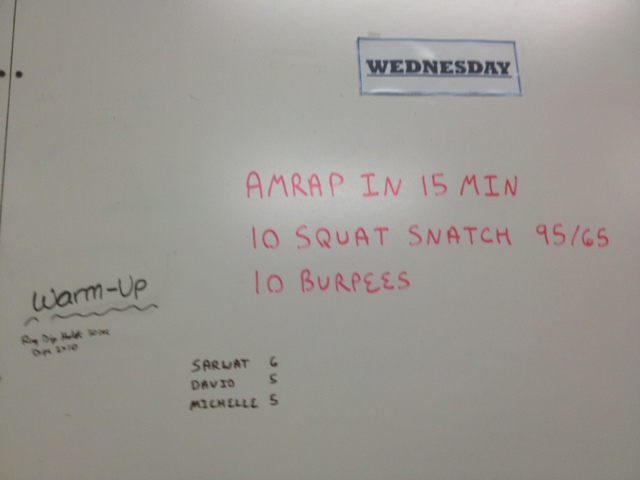 WEDNESDAY
AMRAP IN 15 MIN
10 SQUAT SNATCH 95/65
10 BURPEES
Warm-Up
Ring Dip Hold
Dips 2x10
SARWAT 6
DAVID 5
MICHELLE 5